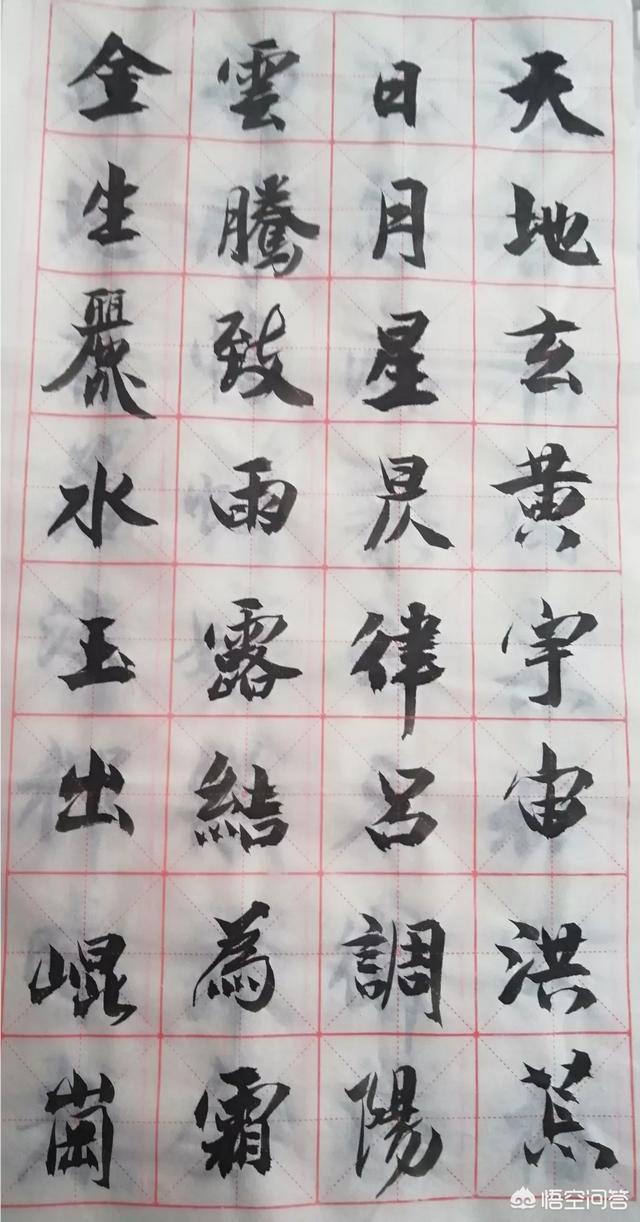 天地玄黄宇宙洪荒
日月星昃律吕調陽
雲騰致雨露結為霜
金生麗水玉出崐崗
悟空问答